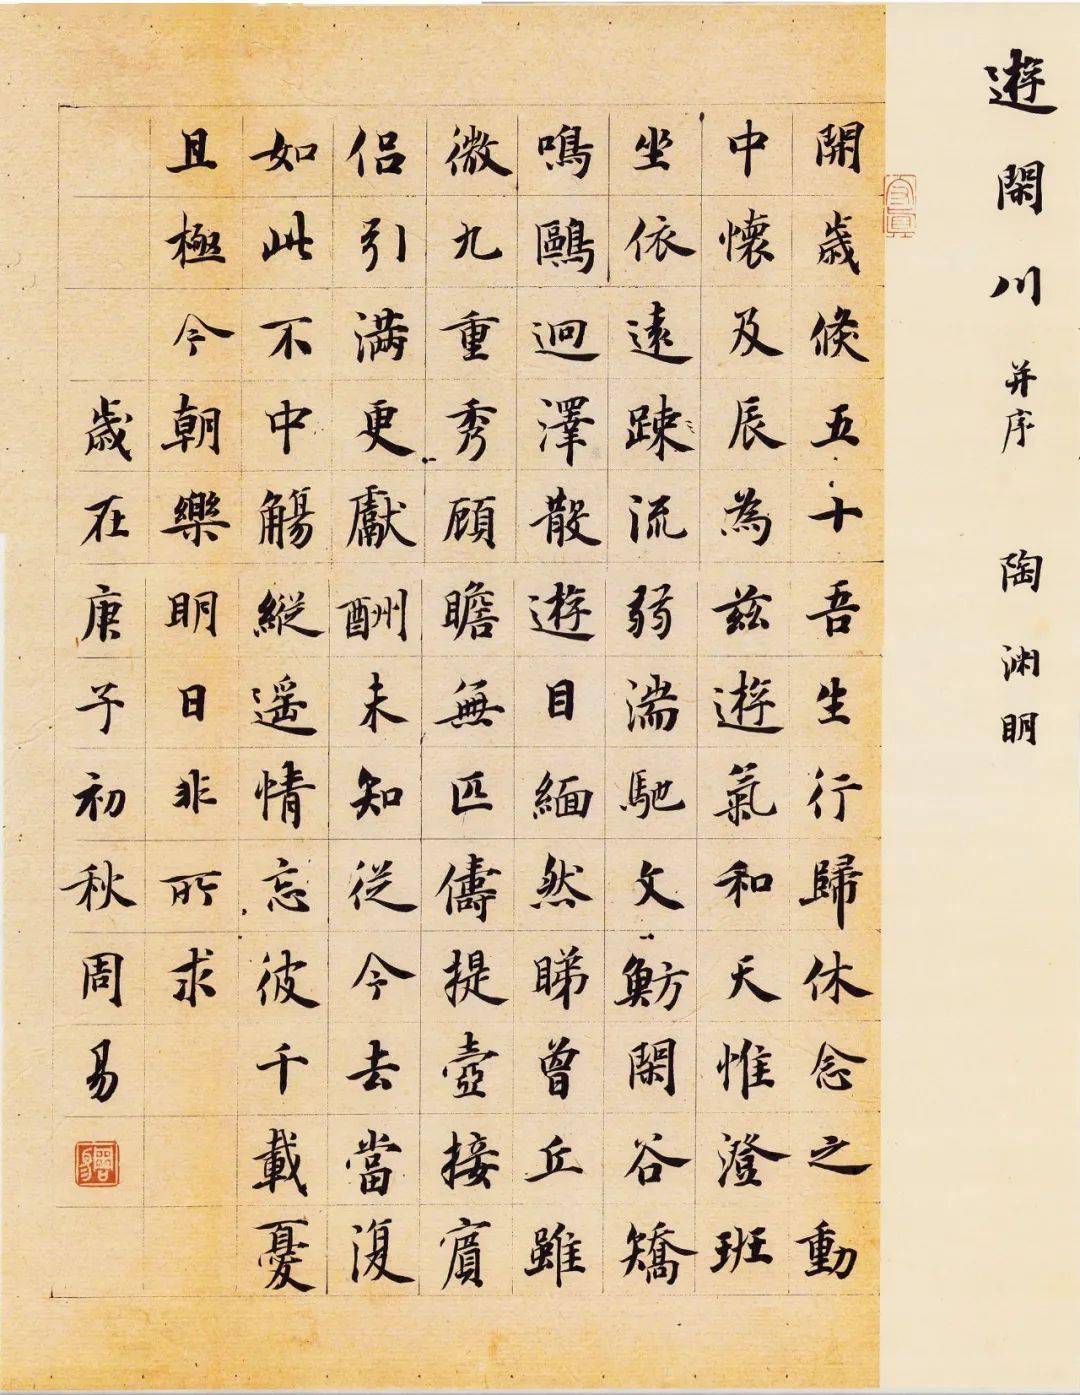 遊閑川 并序 陶渊明
開歲倏五十吾生行歸休念之動
中懷及辰為茲遊氣和天惟澄班
坐依遠踈流弱湍馳文魴閑谷矯
鳴鷗迥澤散遊目緬然睇曾丘雖
微九重秀顧瞻無匹儔提壺接賓
侣引满更獻酬未知從今去當復
如此不中觴縱遥情忘彼千載憂
且極今朝樂明日非所求
歲在庚子初秋周易